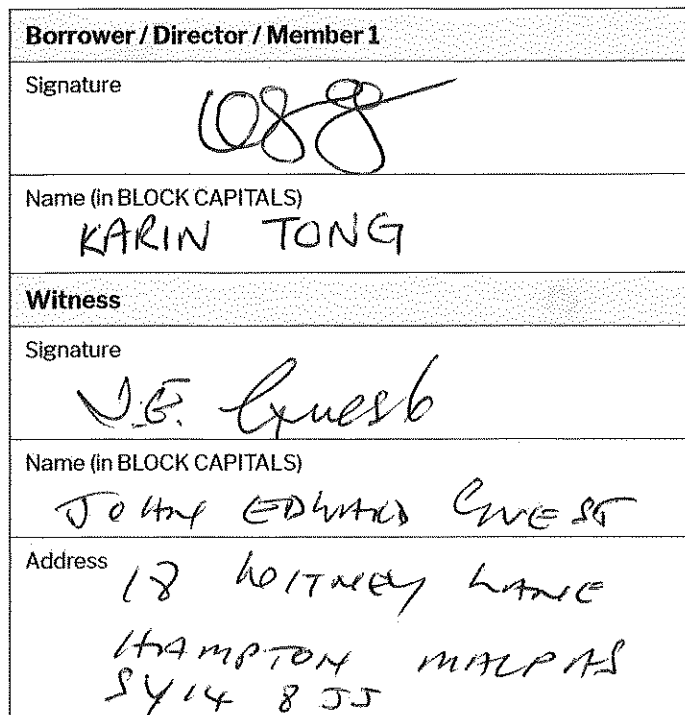 Borrower / Director / Member 1
Signature
Name (in BLOCK CAPITALS)
KARIN TONG
Witness
Signature
J.E. Guest
Name (in BLOCK CAPITALS)
JOHN EDWARD GUEST
Address
18 WITNEY LANE
HAMPTON MALPAS
SY14 8JJ